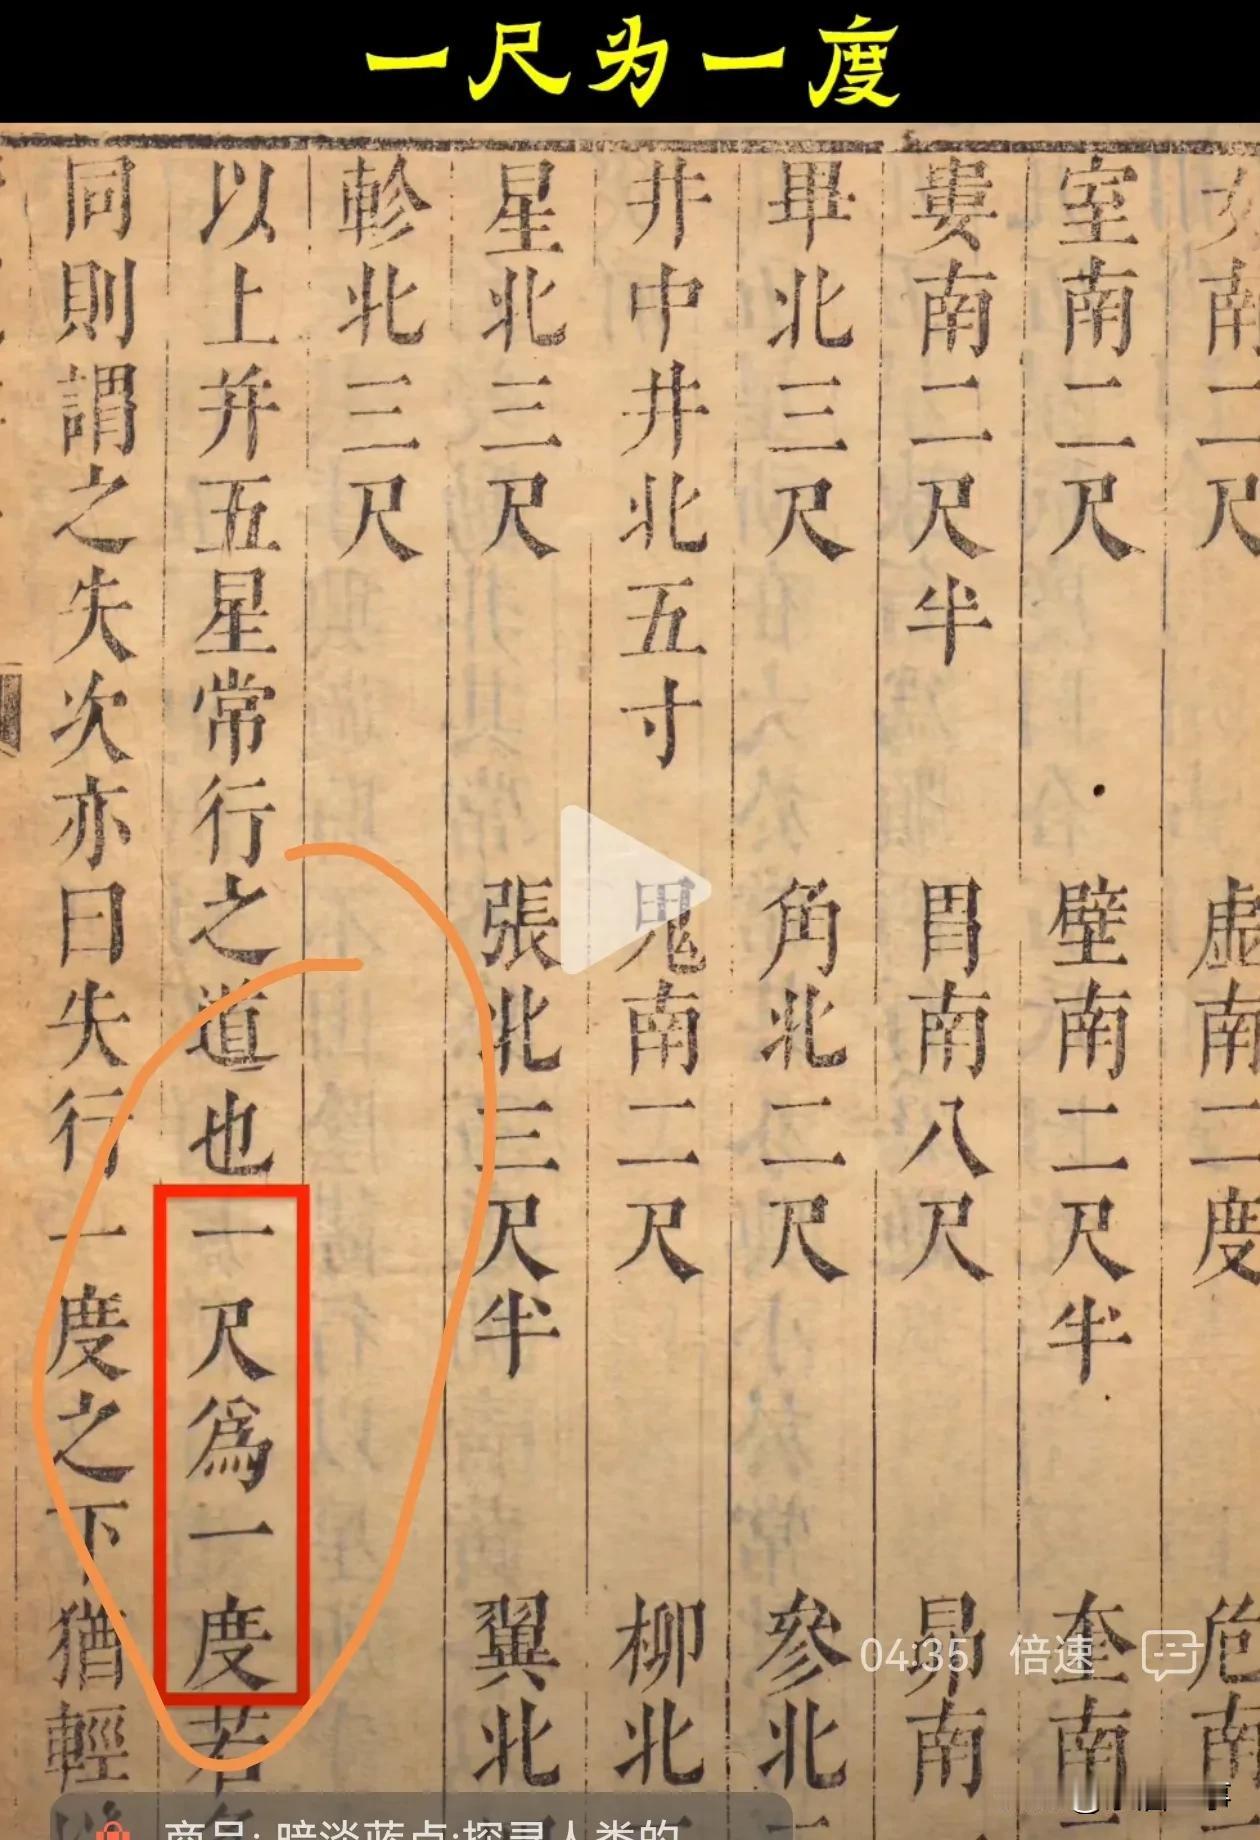 一尺为一度
女南二尺 虛南二度 危南
室南二尺 壁南二尺半 奎南二
婁南二尺半 胃南八尺 昴南
畢北三尺 角北二尺 參北
井中井北五寸 鬼南二尺 柳北
星北三尺 張北三尺半 翼北
軫北三尺
以上并五星常行之道也一尺爲一度若
同則謂之失次亦曰失行一度之下猶輕
04:35 倍速
商品: 暗淡蓝点:探寻人类的